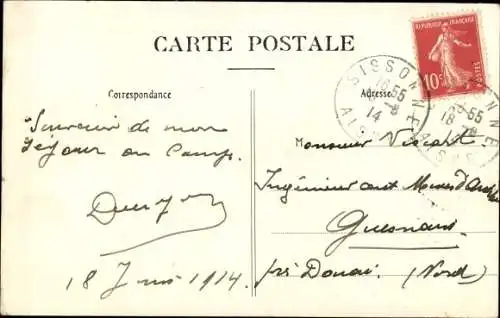 CARTE POSTALE
REPUBLIQUE FRANÇAISE
10c POSTES
SISSONNE
16-55
18-6
14
AISNE
Correspondance
Adresse
Souvenir de mon
séjour au Camp.
18 Juin 1914
Monsieur
Ingénieur aux Mines d'
Guesnain
près Douai (Nord)